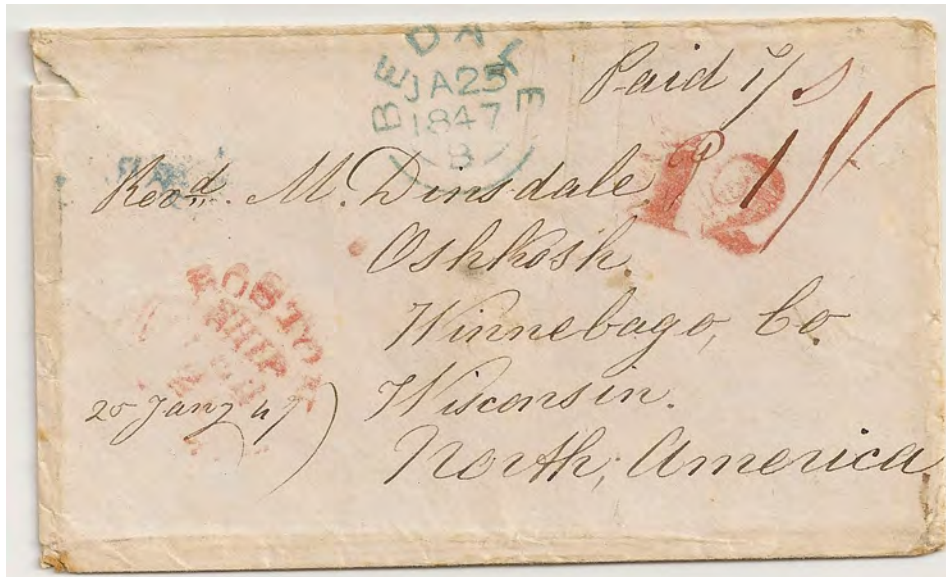 BEDALE
JA25
1847
B
Paid 1/
12
1/
Revd. M. Dinsdale
Oshkosh.
Winnebago, Co
Wisconsin.
North, America
BOSTON
SHIP
25 Jany 47